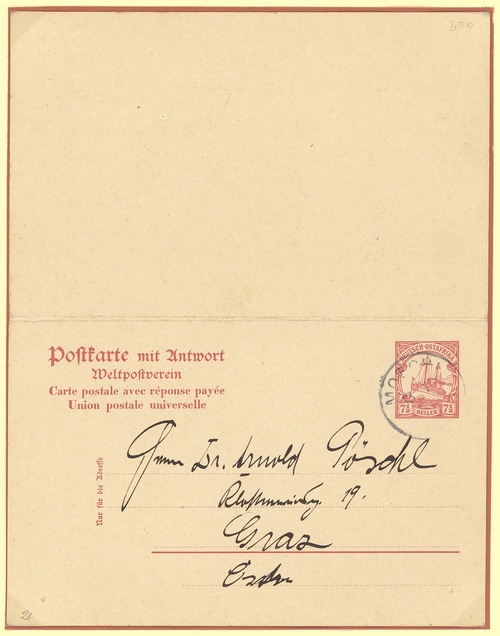 Postkarte mit Antwort
Weltpostverein
Carte postale avec réponse payée
Union postale universelle
DEUTSCH-OSTAFRIKA
7½ HELLER 7½
Nur für die Adresse
Herrn Dr. Arnold Pöschl
19.
Graz
21